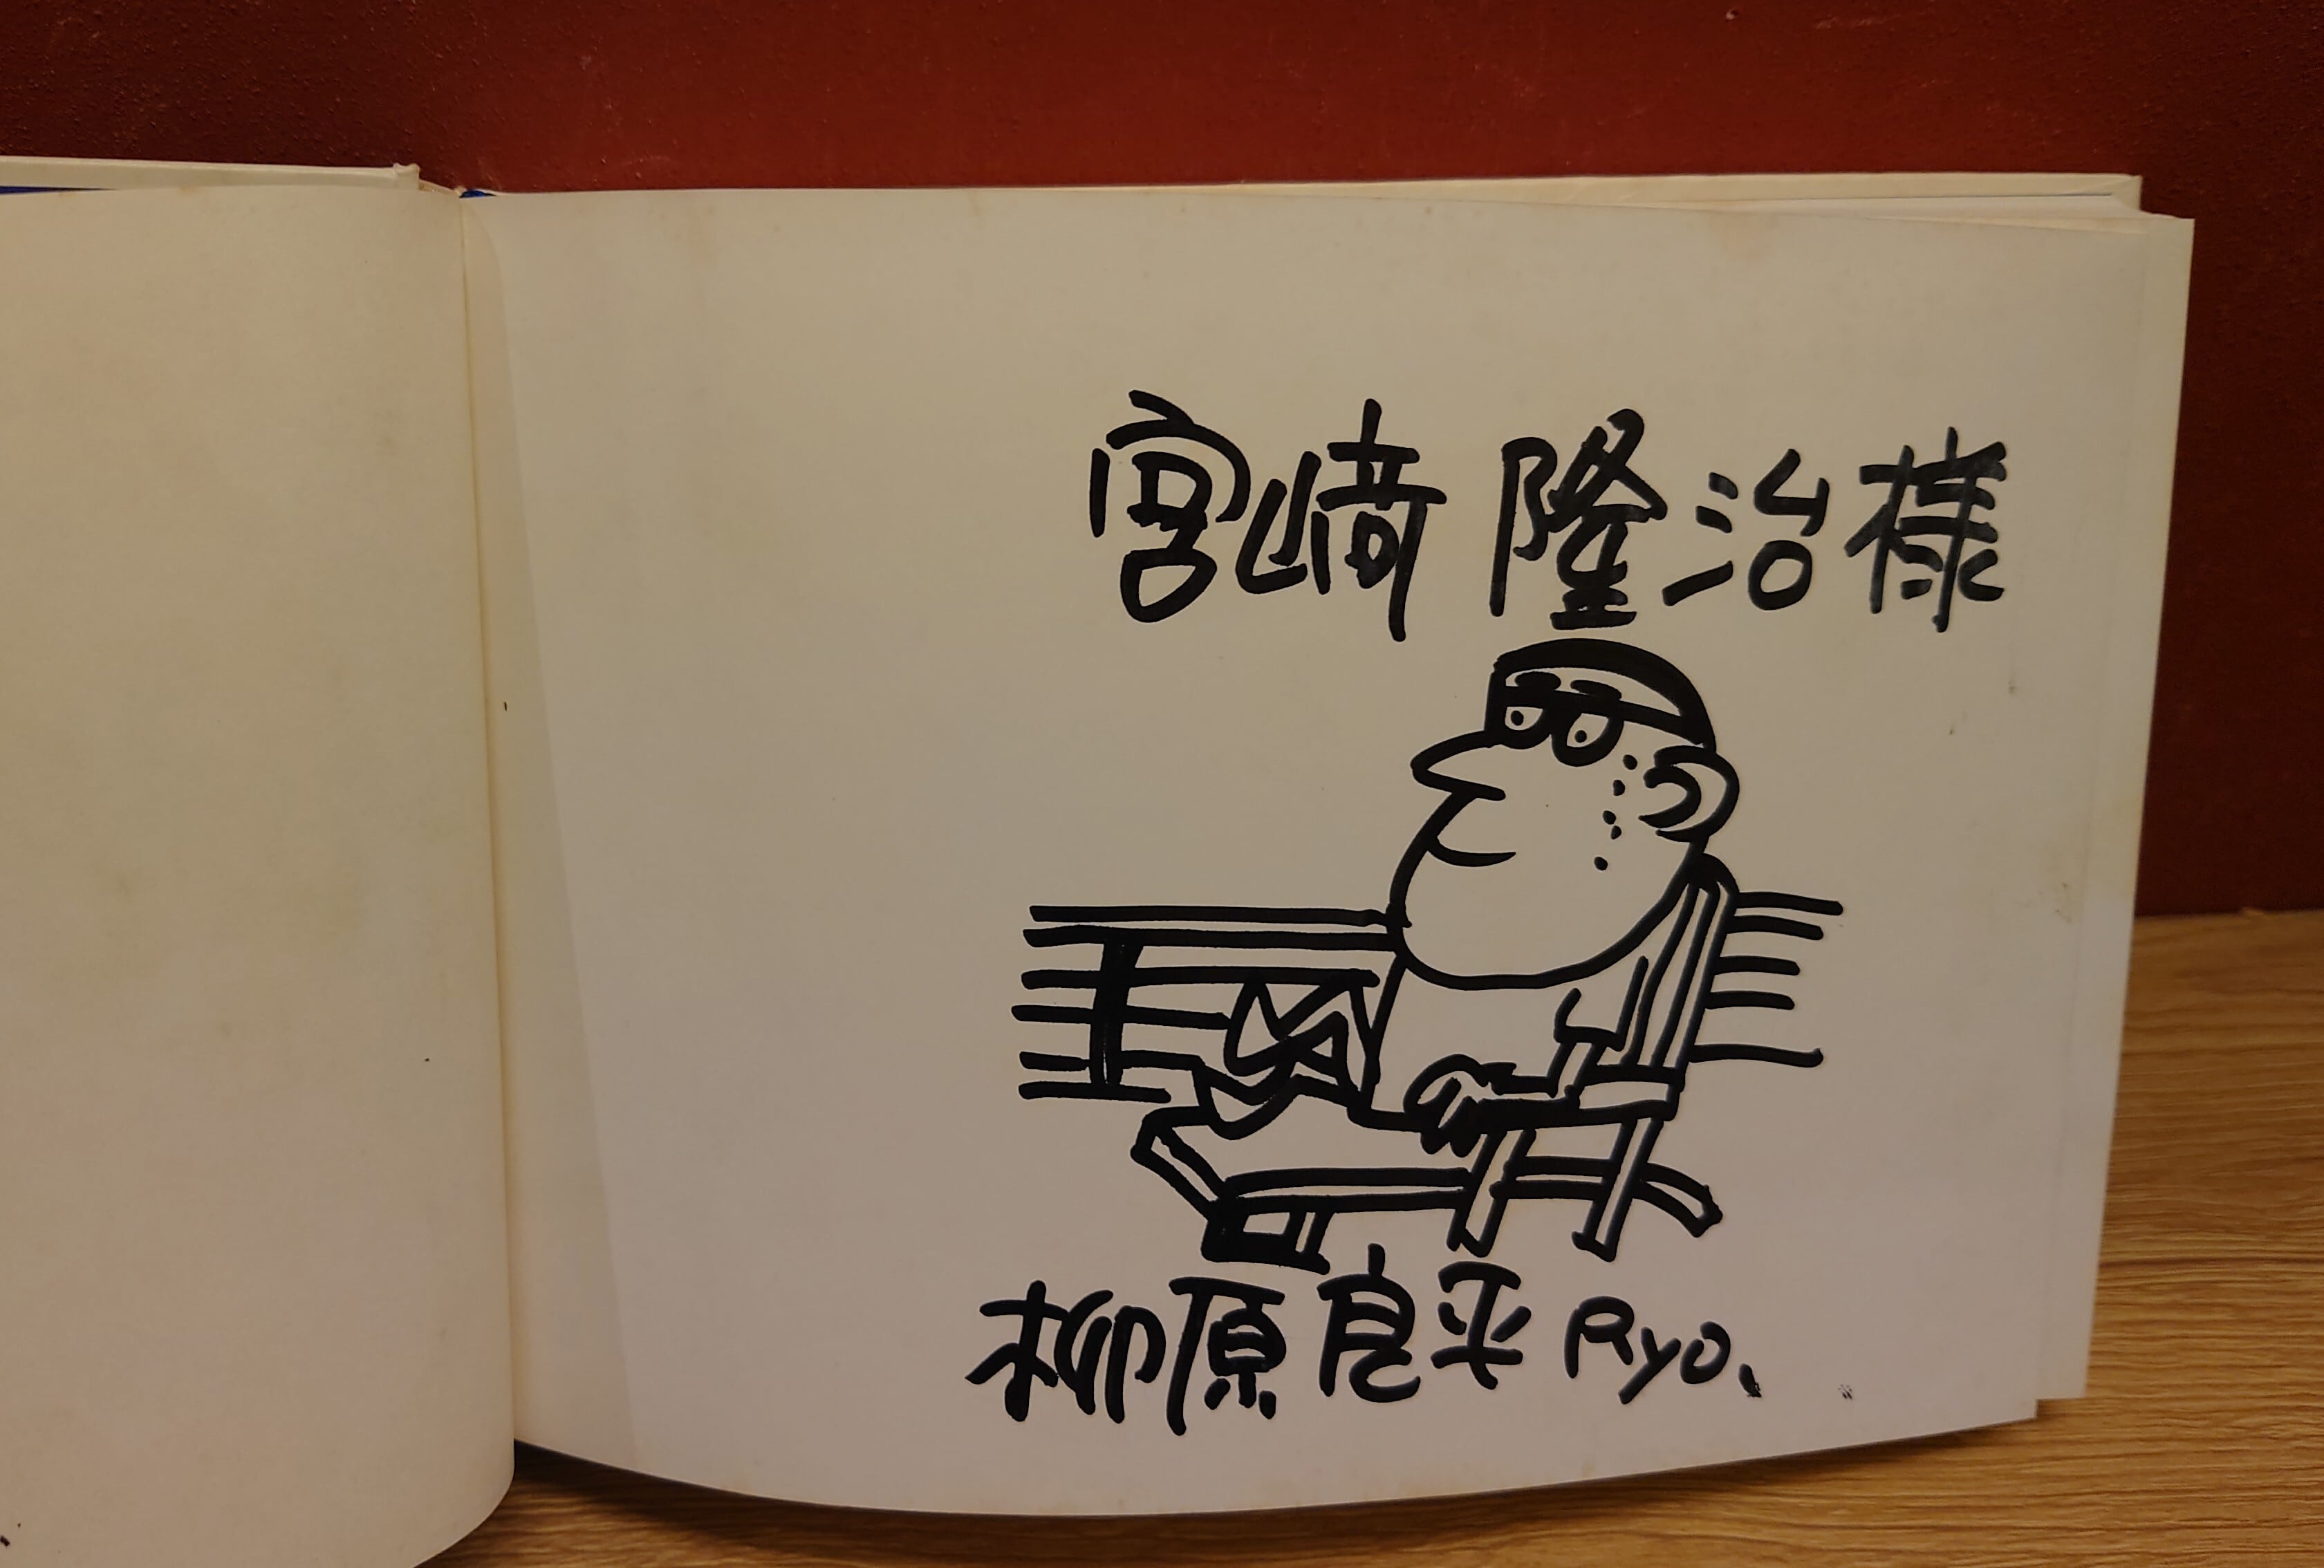 宮﨑 隆治様
柳原良平 Ryo.